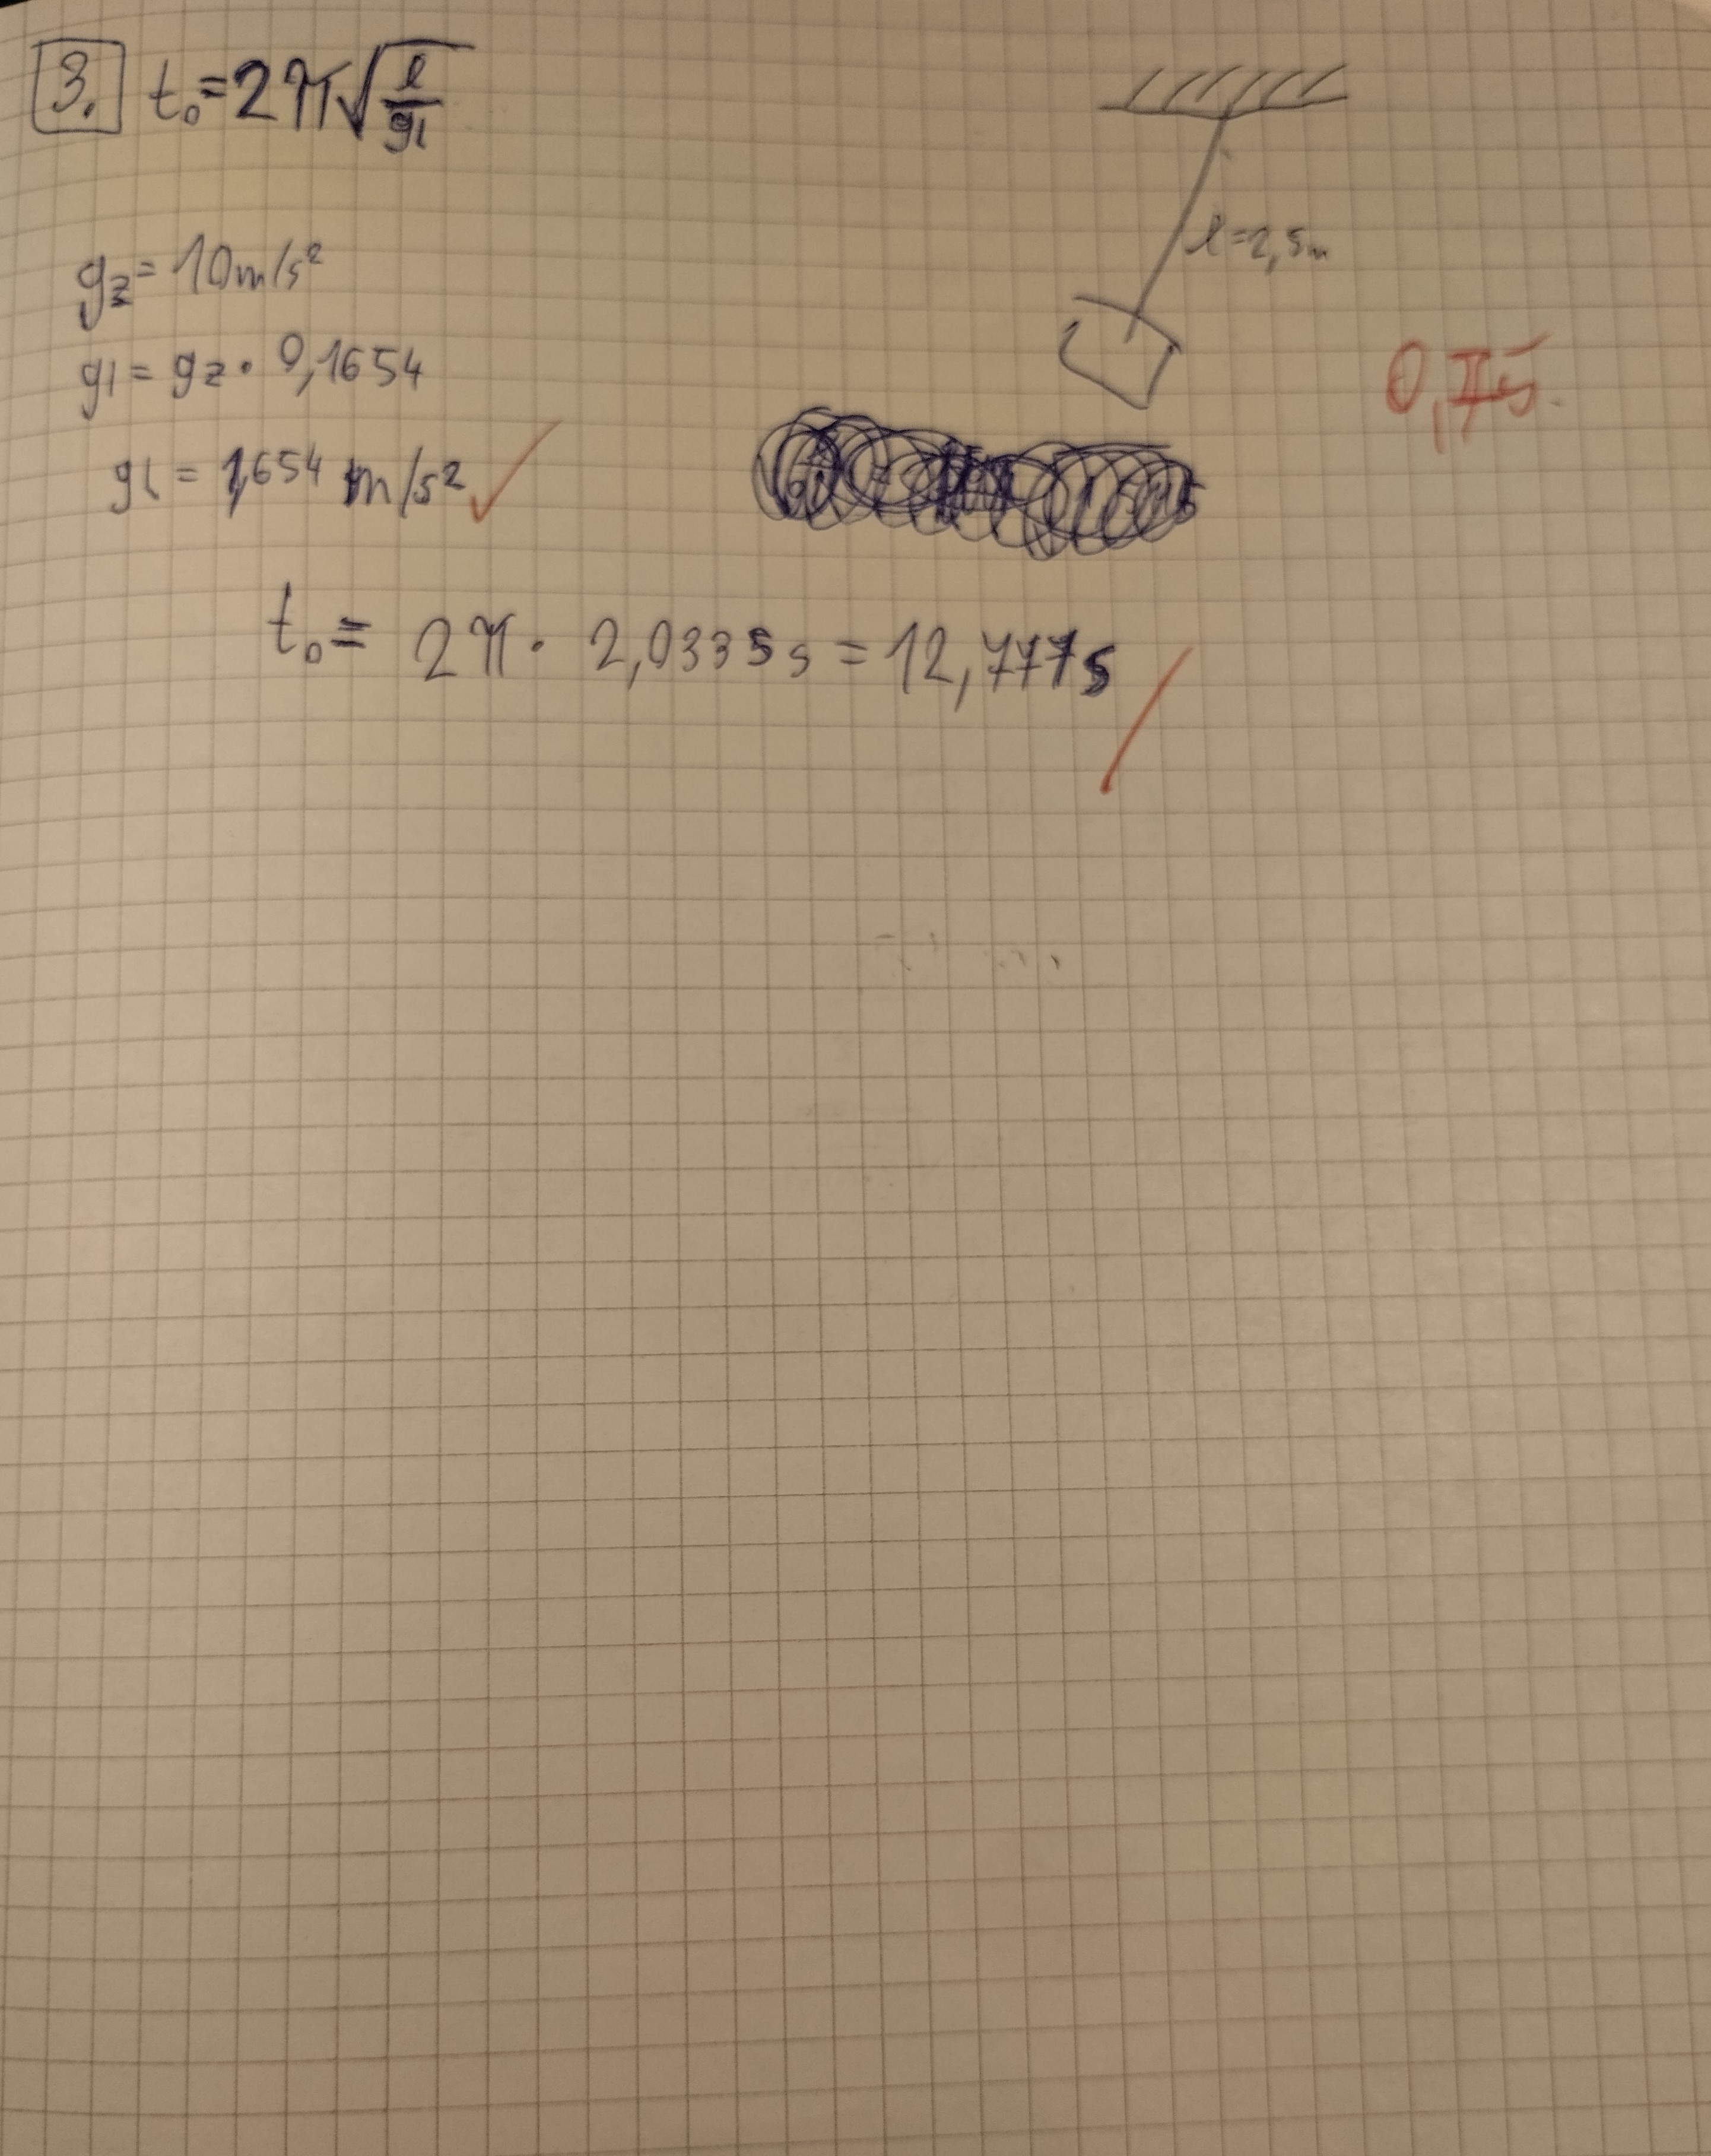 3. t₀=2π√(l/gl)
gz=10m/s²
l=2,5m
gl=gz·0,1654
gl=1,654 m/s²
t₀= 2π· 2,0335s=12,777s